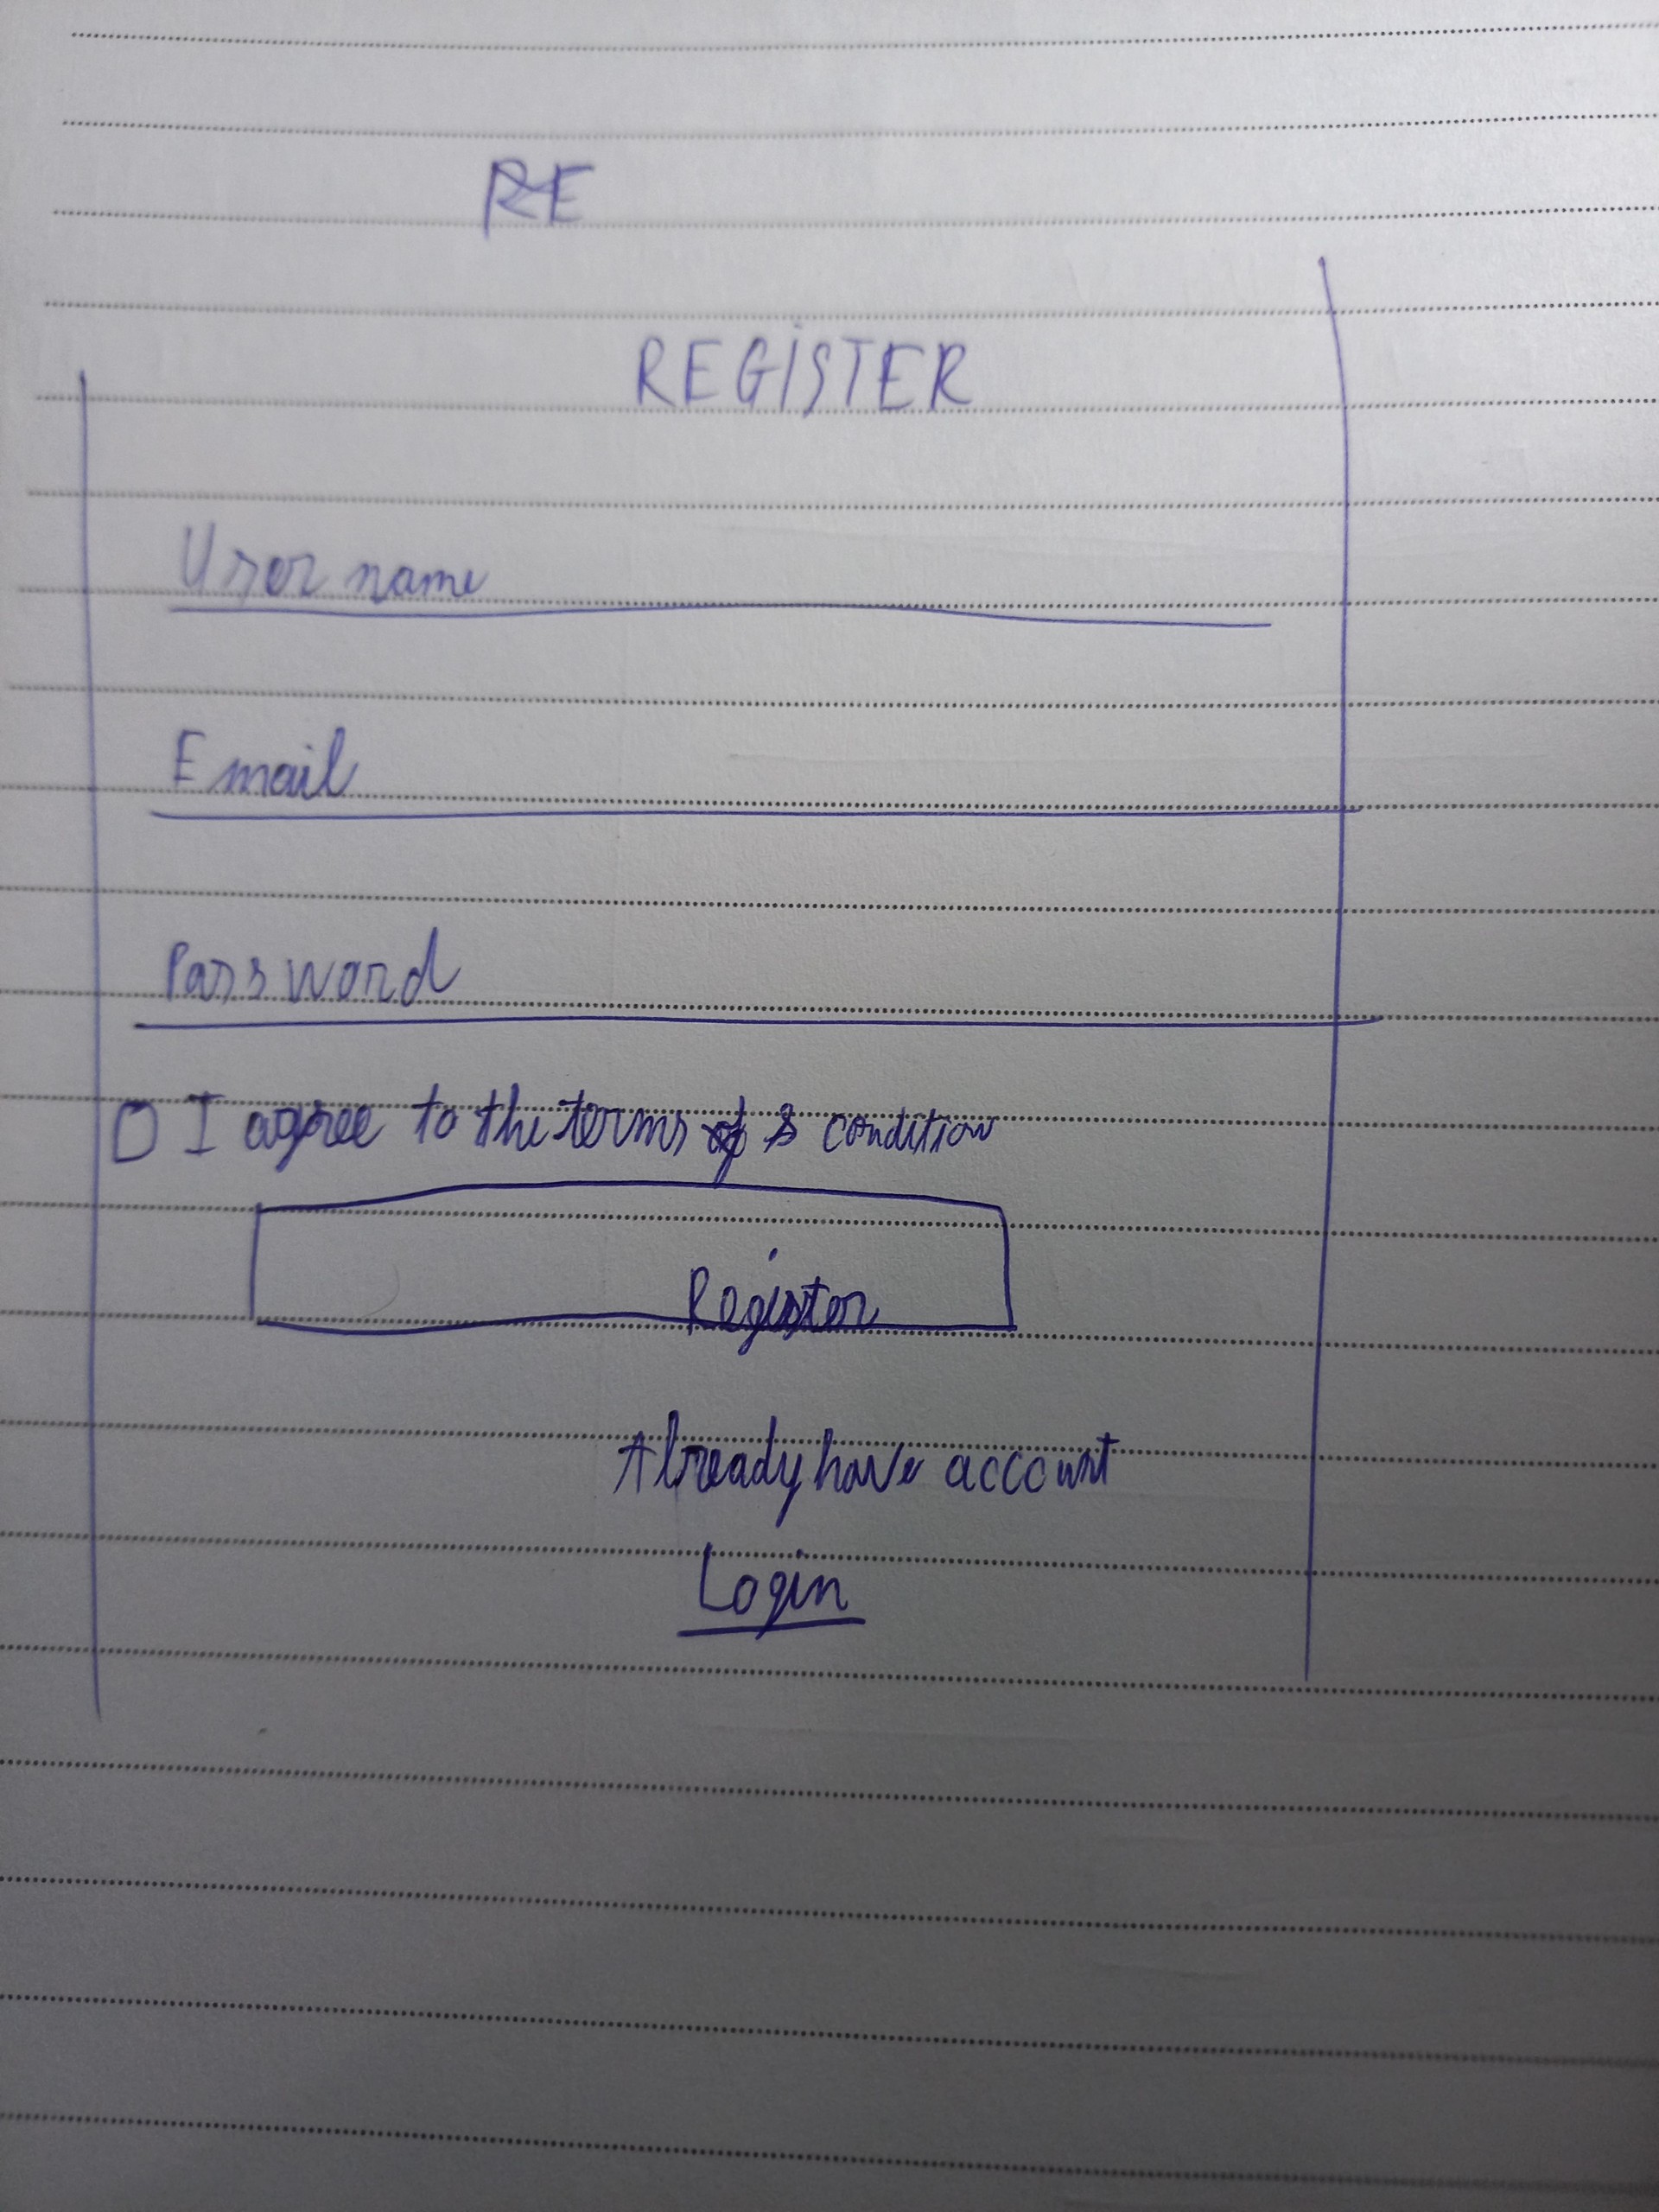 RE
REGISTER
User name
Email
Password
I agree to the terms & condition
Register
Already have account
Login